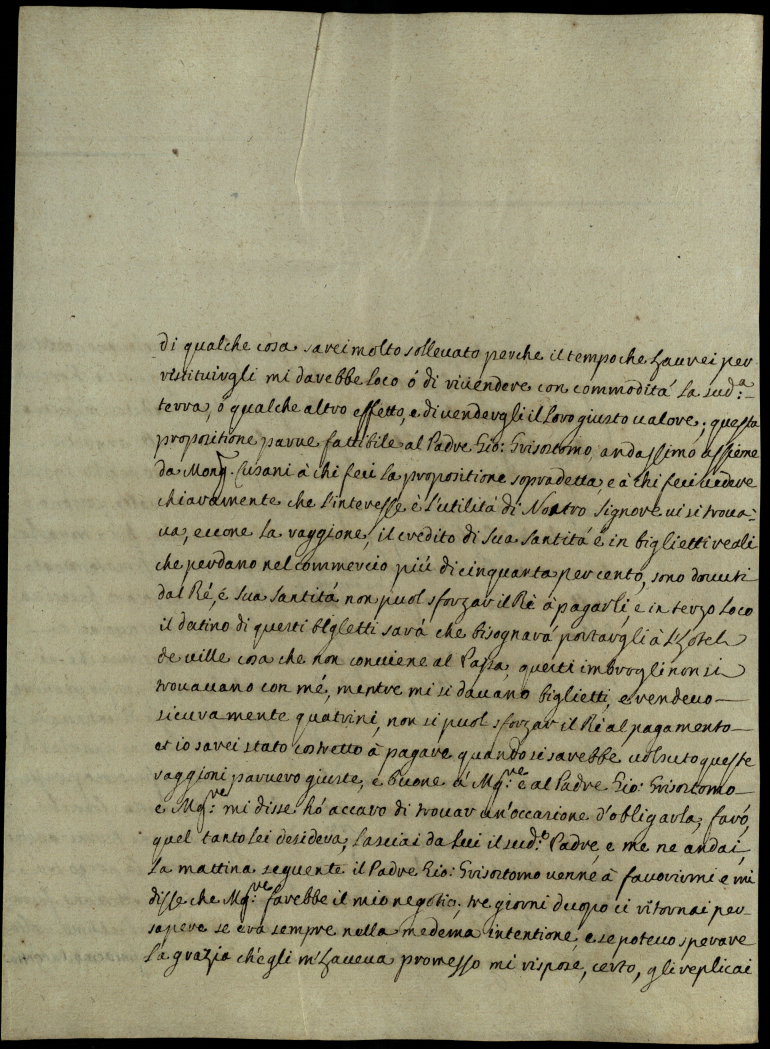 di qualche cosa sarei molto solleuato perche il tempo che haurei per
ristituirgli mi darebbe loco ó di riuendere con commoditá la sud.ª
terra, ó qualche altro effetto, e di vendergli il loro giusto ualore; questa
propositione parue fattibile al Padre Gio: Grisostomo, andassimo assieme
da Mong.r Cusani á chi feci la propositione sopradetta, e á chi feci uedere
chiaramente che l'interesse é l'utilitá di Nostro Signore ui si troua=
ua, eccone la raggione, il credito di Sua Santitá é in biglietti reali
che perdano nel commercio piú di cinquanta per cento, sono douuti
dal Ré, é Sua Santitá non puol sforzar il Ré á pagarli, e in terzo loco
il datino di questi biglietti sará che bisognará portargli á L'hotel
de ville cosa che non conuiene al Papa, questi imbrogli non si
trouauano con mé, mentre mi si dauano biglietti, e rendeuo
sicuramente quatrini, non si puol sforzar il Ré al pagamento
et io sarei stato costretto á pagare quando si sarebbe uolsuto queste
raggioni paruero giuste, e buone á Mg.re é al Padre Gio: Grisostomo
e Mg.re mi disse hó accaro di trouar un'occasione d'obligarla, faró,
quel tanto lei desidera, lasciai da lui il sud.o Padre, e me ne andai,
La mattina sequente il Padre Gio: Grisostomo uenne á fauorirmi e mi
disse che Mg.re farebbe il mio negotio; tre giorni duopo ci ritornai per
sapere se era sempre nella medema intentione, e se poteuo sperare
La grazia ch'egli m'haueua promesso mi rispose, certo, gli replicai